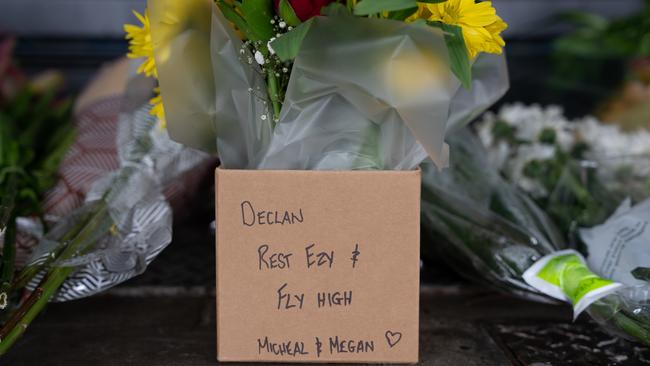 DECLAN
REST EZY &
FLY HIGH
MICHEAL & MEGAN